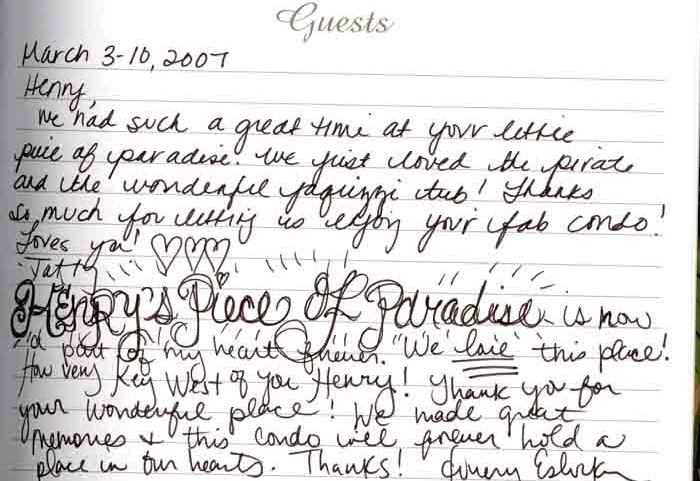 Guests
March 3-10, 2007
Henry,
We had such a great time at your little
piece of paradise. We just loved the pirate
and the wonderful jaquizzi tub! Thanks
so much for letting us enjoy your fab condo!
Loves ya!
Henry's Piece Of Paradise is now
a part of my heart forever. "We love this place!
How very Key West of you Henry! Thank you for
your wonderful place! We made great
memories & this condo will forever hold a
place in our hearts. Thanks!